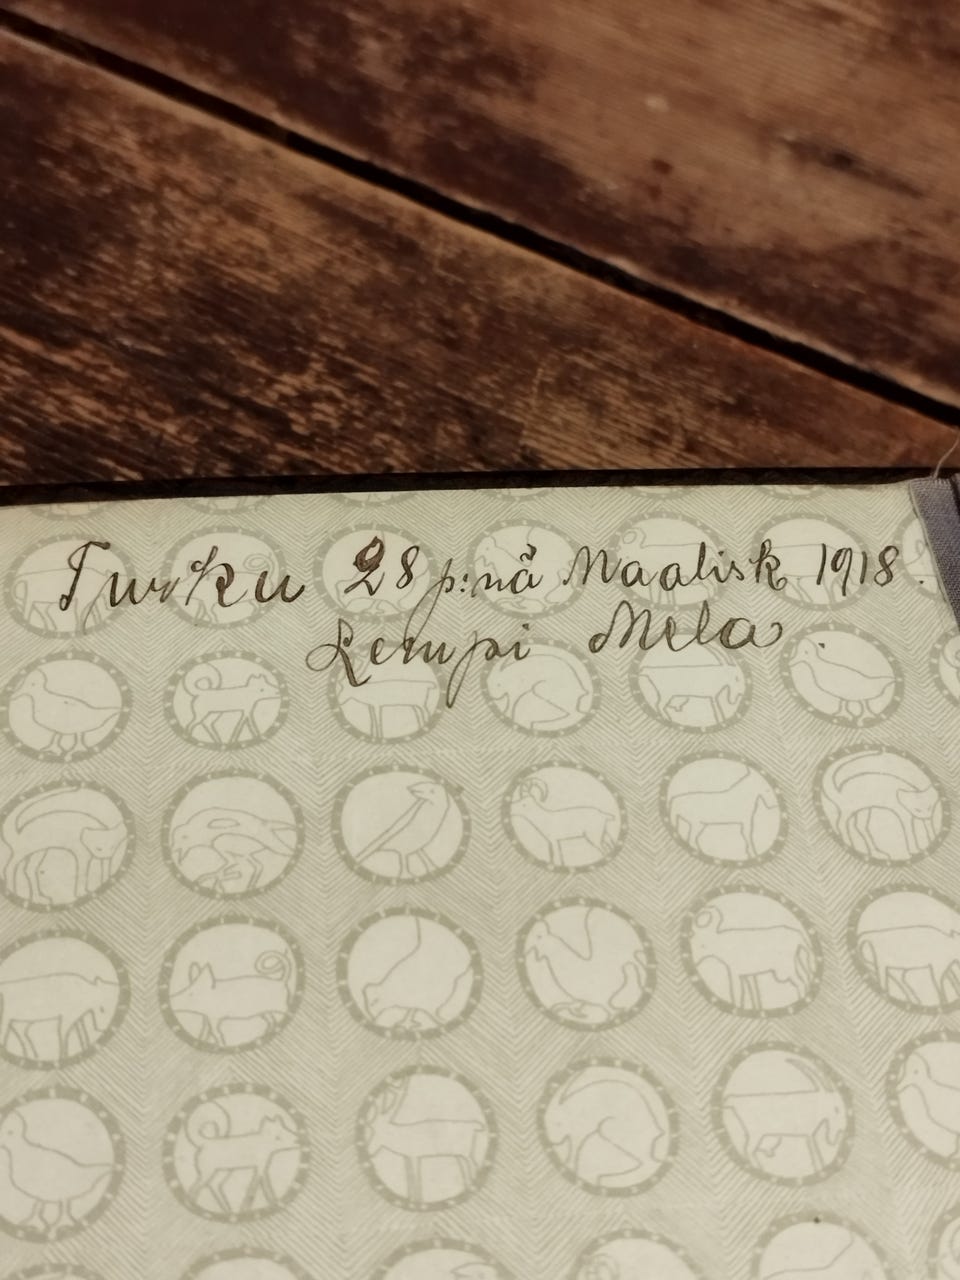 Turku 28 p:nä Maalisk 1918.
Lempi Mela.